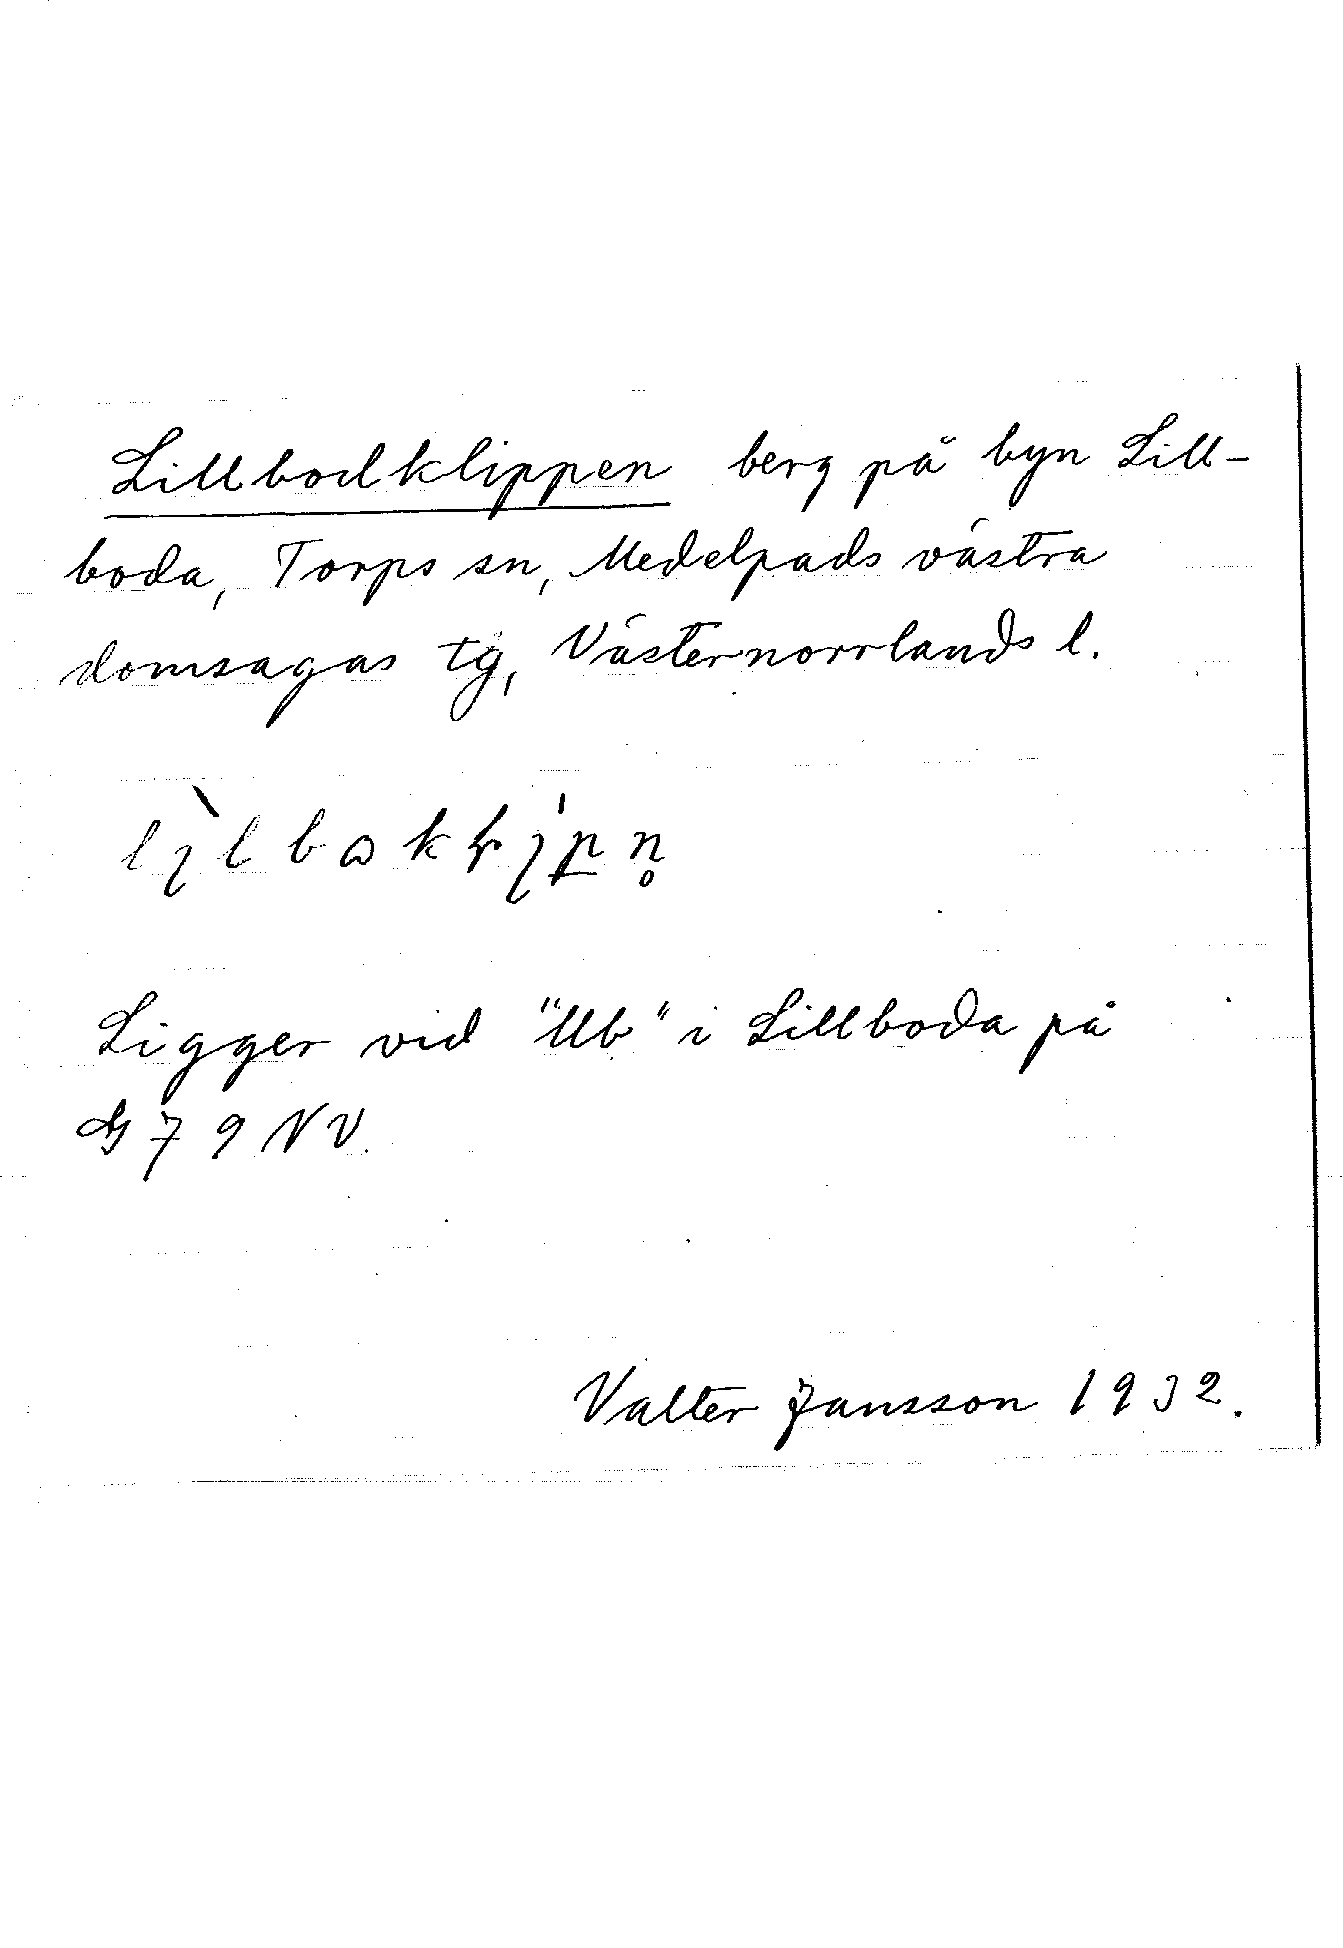 Lillbodklippen berg på byn Lill-
boda, Torps sn, Medelpads västra
domsagas tg, Västernorrlands l.
Ligger vid "Ub" i Lillboda på
G 79 NV.
Valter Jansson 1932.